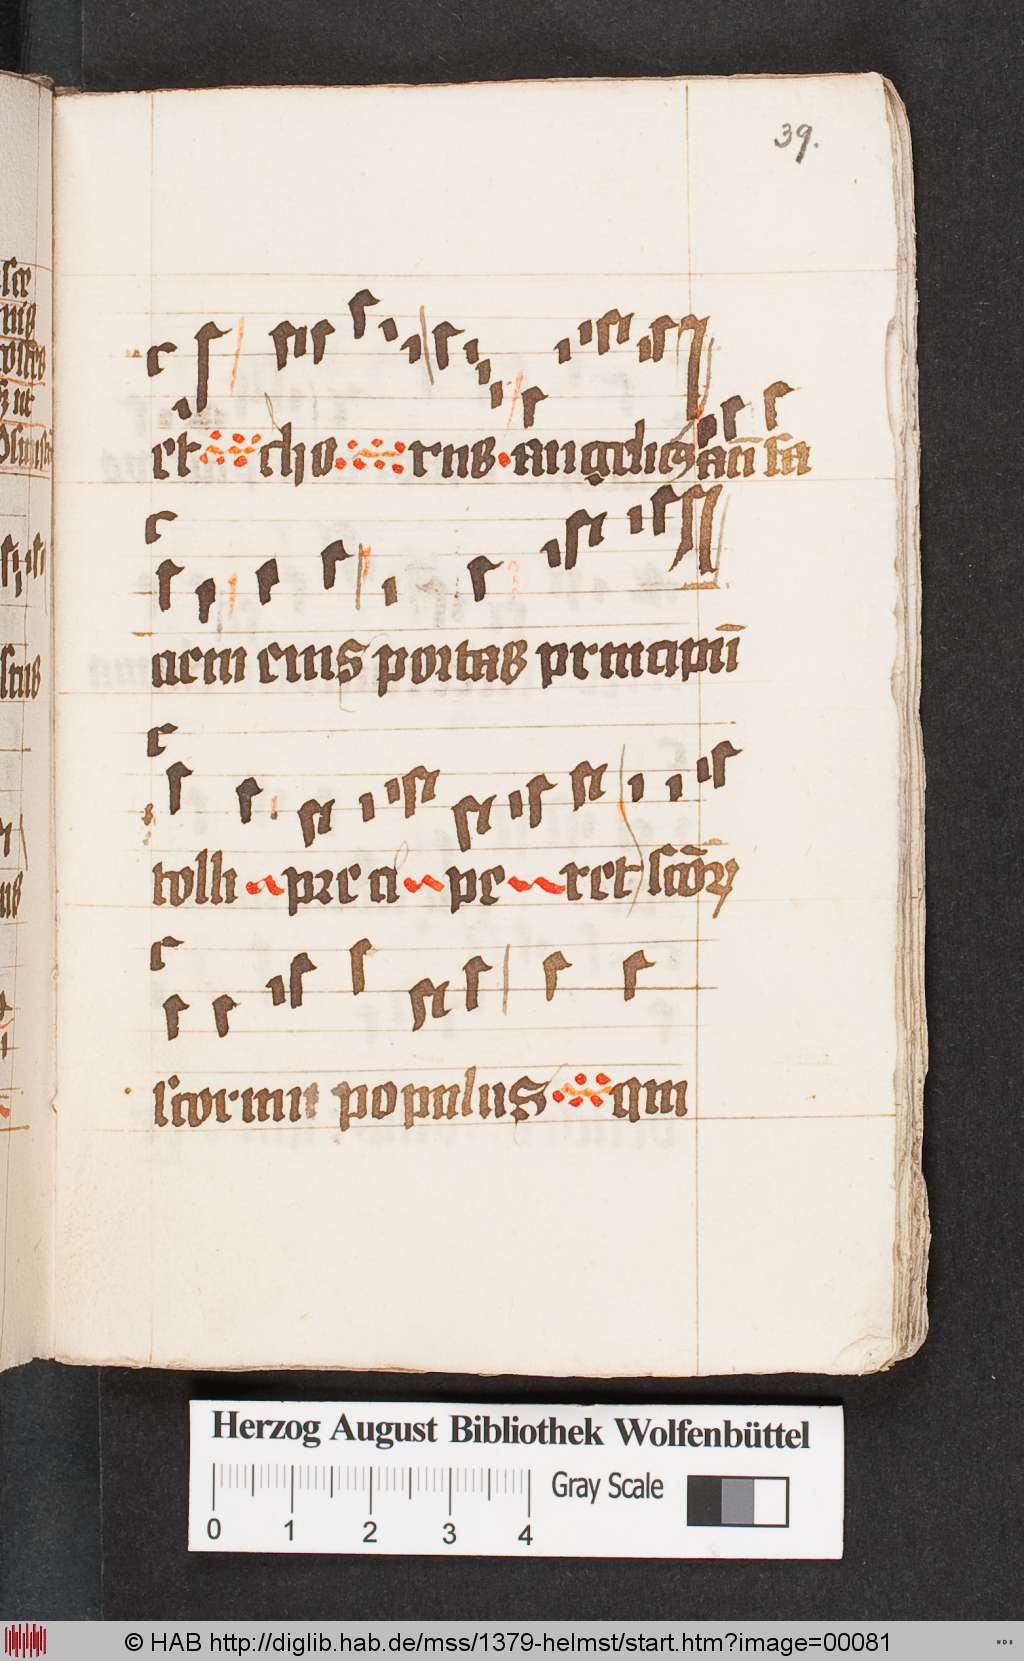 39.
et cho rus angelicus an̄ fa
aciem eius portas principū
tolli pre ci pe ret sc̄orꝝ
scorum populus qui
Herzog August Bibliothek Wolfenbüttel
Gray Scale
0 1 2 3 4
© HAB http://diglib.hab.de/mss/1379-helmst/start.htm?image=00081